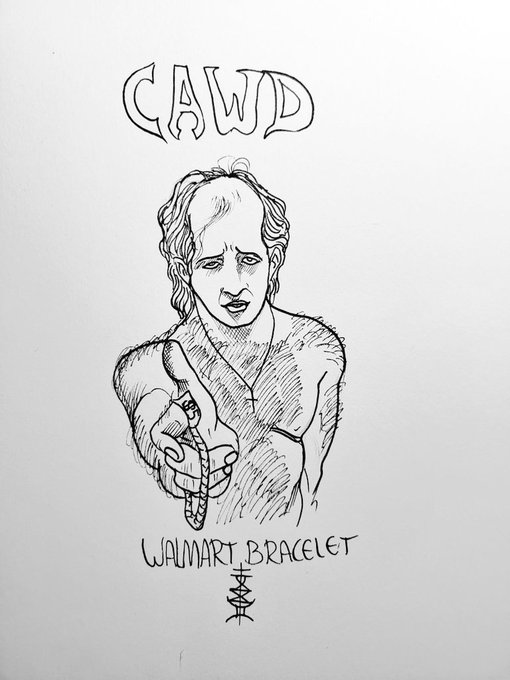 CAWD
WALMART BRACELET